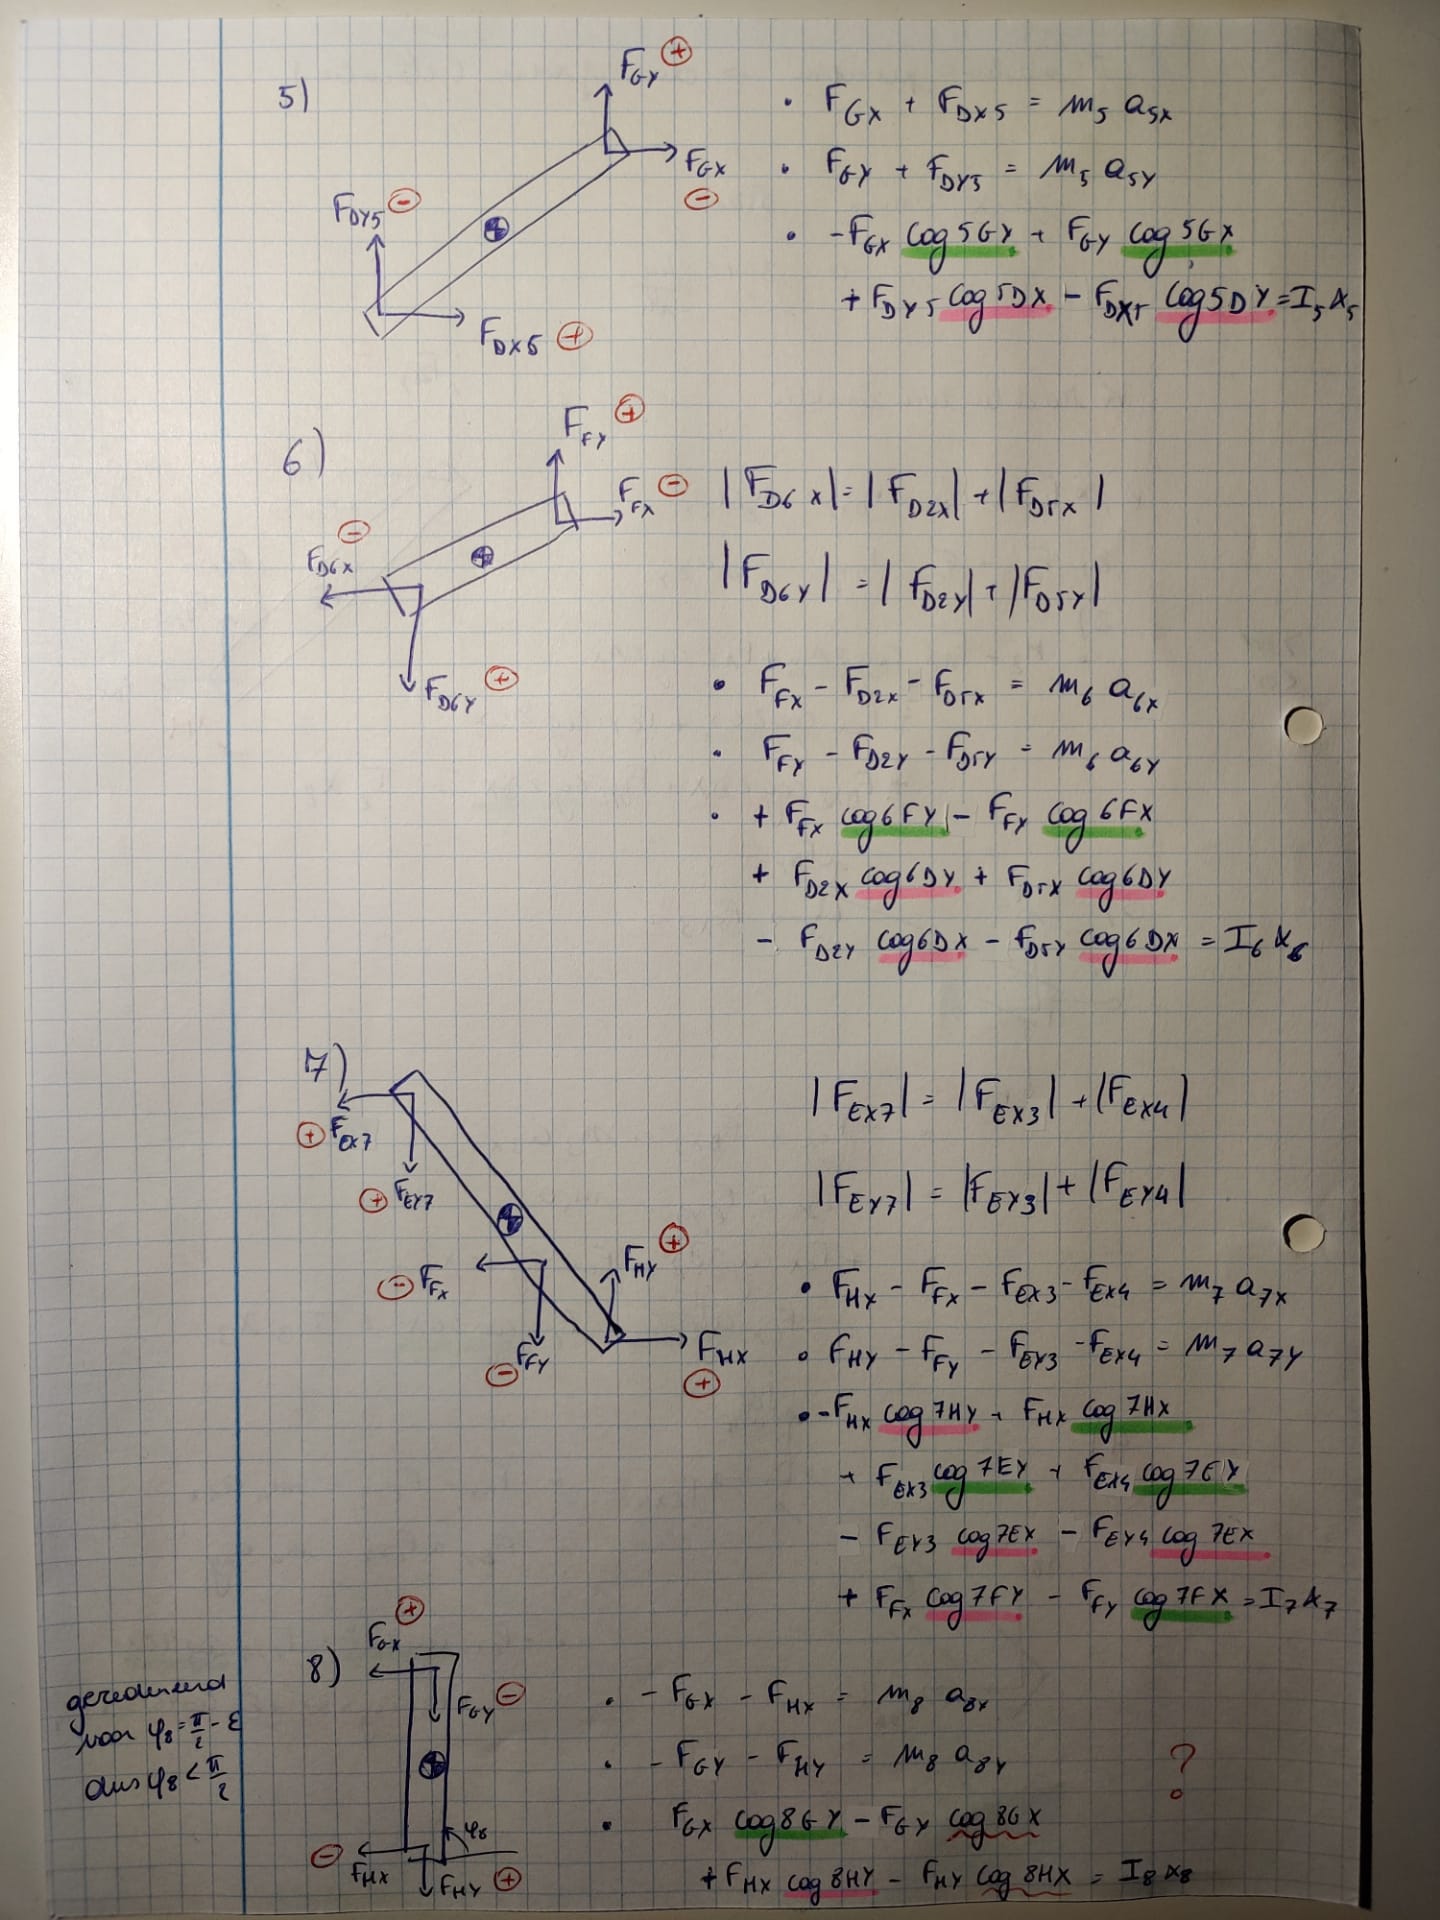 5)
F_GY ⊕
F_GX ⊖
F_DY5 ⊖
F_DX5 ⊕
• F_GX + F_DX5 = m_5 a_5X
• F_GY + F_DY5 = m_5 a_5Y
• -F_GX cog5GY + F_GY cog5GX
+ F_DY5 cog5DX - F_DX5 cog5DY = I_5 α_5
6)
F_FY ⊕
F_FX ⊖
F_D6X ⊖
F_D6Y ⊕
|F_D6X| = |F_D2X| + |F_D5X|
|F_D6Y| = |F_D2Y| + |F_D5Y|
• F_FX - F_D2X - F_D5X = m_6 a_6X
• F_FY - F_D2Y - F_D5Y = m_6 a_6Y
• + F_FX cog6FY - F_FY cog6FX
+ F_D2X cog6DY + F_D5X cog6DY
- F_D2Y cog6DX - F_D5Y cog6DX = I_6 α_6
7)
⊕ F_EX7
⊕ F_EY7
⊖ F_FX
⊖ F_FY
F_HY ⊕
F_HX ⊕
|F_EX7| = |F_EX3| + |F_EX4|
|F_EY7| = |F_EY3| + |F_EY4|
• F_HX - F_FX - F_EX3 - F_EX4 = m_7 a_7X
• F_HY - F_FY - F_EY3 - F_EX4 = m_7 a_7Y
• -F_HX cog7HY + F_HX cog7HX
+ F_EX3 cog7EY + F_EX4 cog7EY
- F_EY3 cog7EX - F_EY4 cog7EX
+ F_FX cog7FY - F_FY cog7FX = I_7 α_7
8)
F_GX ⊕
F_GY ⊖
φ_8
⊖ F_HX
F_HY ⊕
gerekend
voor φ_8 = π/2 - ε
dus φ_8 < π/2
• - F_GX - F_HX = m_8 a_8X
• - F_GY - F_HY = m_8 a_8Y
?
• F_GX cog8GY - F_GY cog8GX
+ F_HX cog8HY - F_HY cog8HX = I_8 α_8